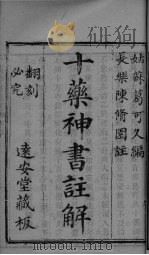 姑蘇葛可久編
長樂陳脩園註
十藥神書註解
翻刻
必究
遠安堂藏板